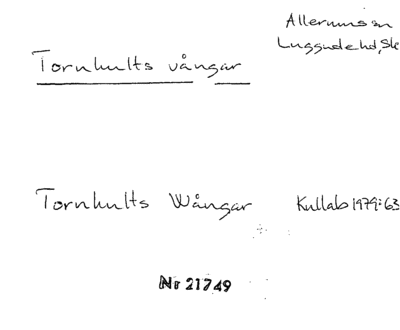 Allerums sn
Luggude hd, Sk
Tornhults vångar
Tornhults Wångar Kullab 1979:63
Nr 21749